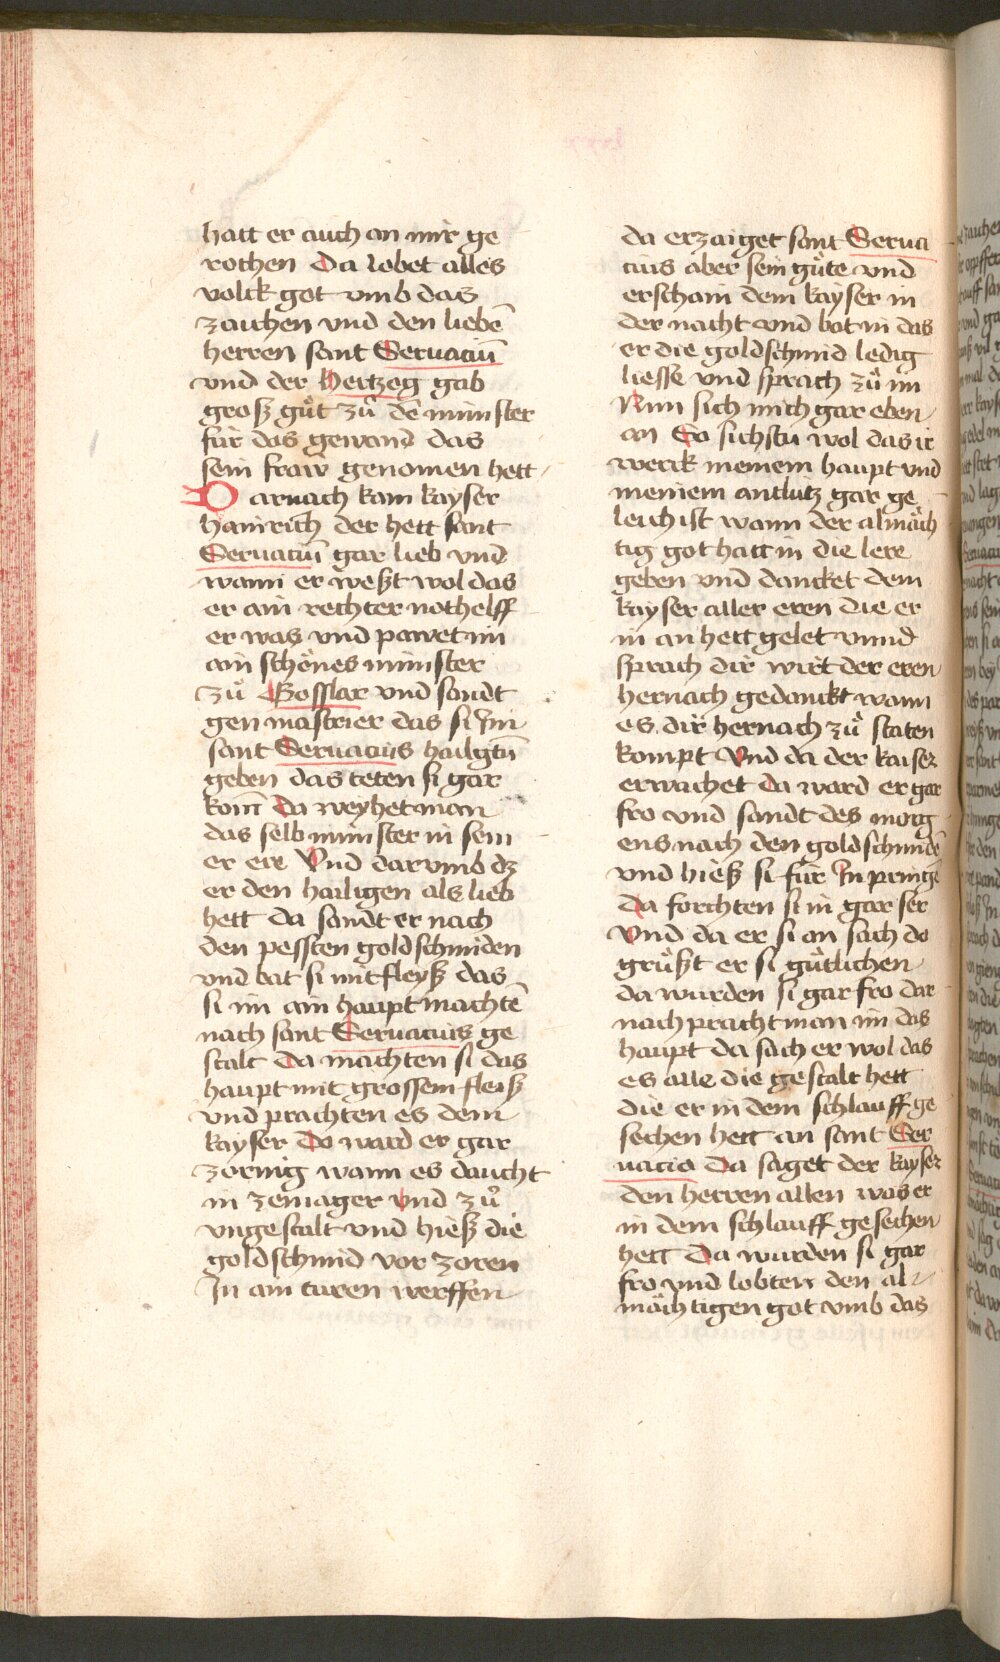 hatt er auch an mir ge
rochen Da lobet alles
volck got vmb das
zaichen vnd den liebē
herren sant Seruaciū
vnd der Hertzog gab
grosz gůt zů dē münster
für das gewand das
sein fraw genomen hett
Darnach kam kayser
hainrich der hett sant
Seruaciū gar lieb vnd
wann er weszt wol das
er ain rechter nothelff
er was vnd pawet im
ain schönes münster
zů Gosslar vnd sandt
gen mastrier das si Im
sant Seruacius hailgtū
geben das teten si gar
kom̄ Da weyhet man
das selb münster in sein
er ere Vnd darvmb dz
er den hailigen als lieb
hett da sandt er nach
den pessten goldschmiden
vnd bat si mit fleysz das
si im ain haupt machtē
nach sant Seruacius ge
stalt Da machten si das
haupt mit grossem fleisz
vnd prachten es dem
kayser Do ward er gar
zornig wann es daucht
in ze mager vnd zů
vngestalt vnd hiesz die
goldschmid vor zoren
In ain turen werffen
da erzaiget sant Serua
cius aber sein gůte vnd
erschain dem kayser in
der nacht vnd bat in das
er die goldschmid ledig
liesse vnd sprach zů im
Nun sich mich gar eben
an So sichstu wol das ir
werck meinem haupt vnd
meinem antlütz gar ge
leich ist wann der almäch
tig got hatt in die lere
geben vnd dancket dem
kayser aller eren die er
in an hett gelet vnnd
sprach dir wirt der eren
hernach gedanckt wann
es dir hernach zů staten
kompt Vnd da der kaiser
erwachet da ward er gar
fro vnd sandt des morg
ens nach den goldschmidē
vnd hiesz si für In pringē
Da forchten si in gar ser
Vnd da er si an sach do
grůszt er si gůtlichen
da wurden si gar fro dar
nach pracht man im das
haupt da sach er wol das
es alle die gestalt hett
die er in dem schlauff ge
sechen hett an sant Ser
uacio Da saget der kayser
den herren allen was er
in dem schlauff gesechen
hett Da wurden si gar
fro vnd lobten den al
mächtigen got vmb das